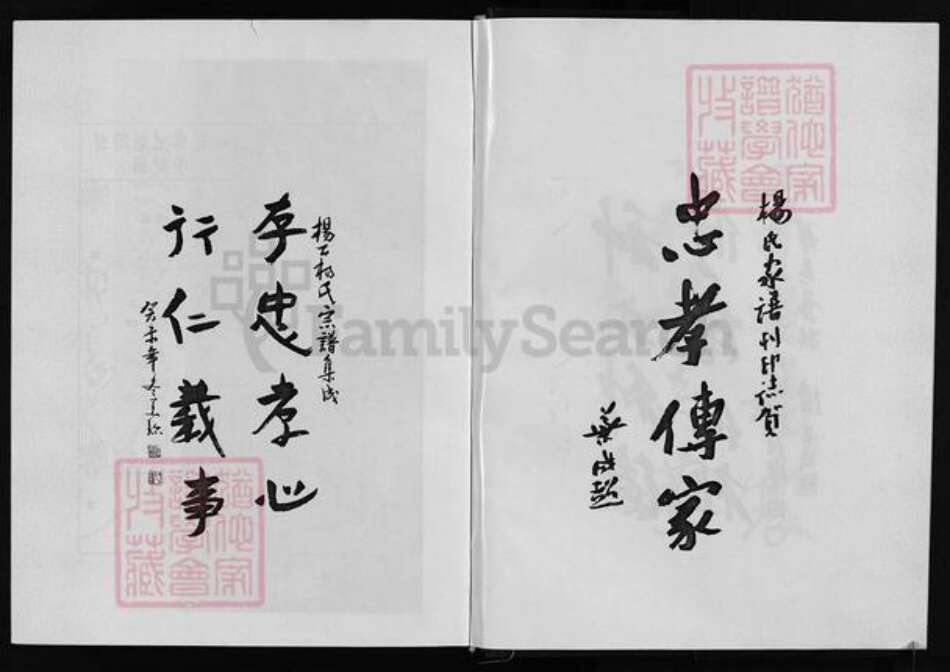 楊氏家譜刊印誌賀
忠孝傳家
楊公楊氏宗譜集成
存忠孝心
行仁義事
癸未年冬
猶他家
譜學會
收藏
猶他家
譜學會
收藏
FamilySearch